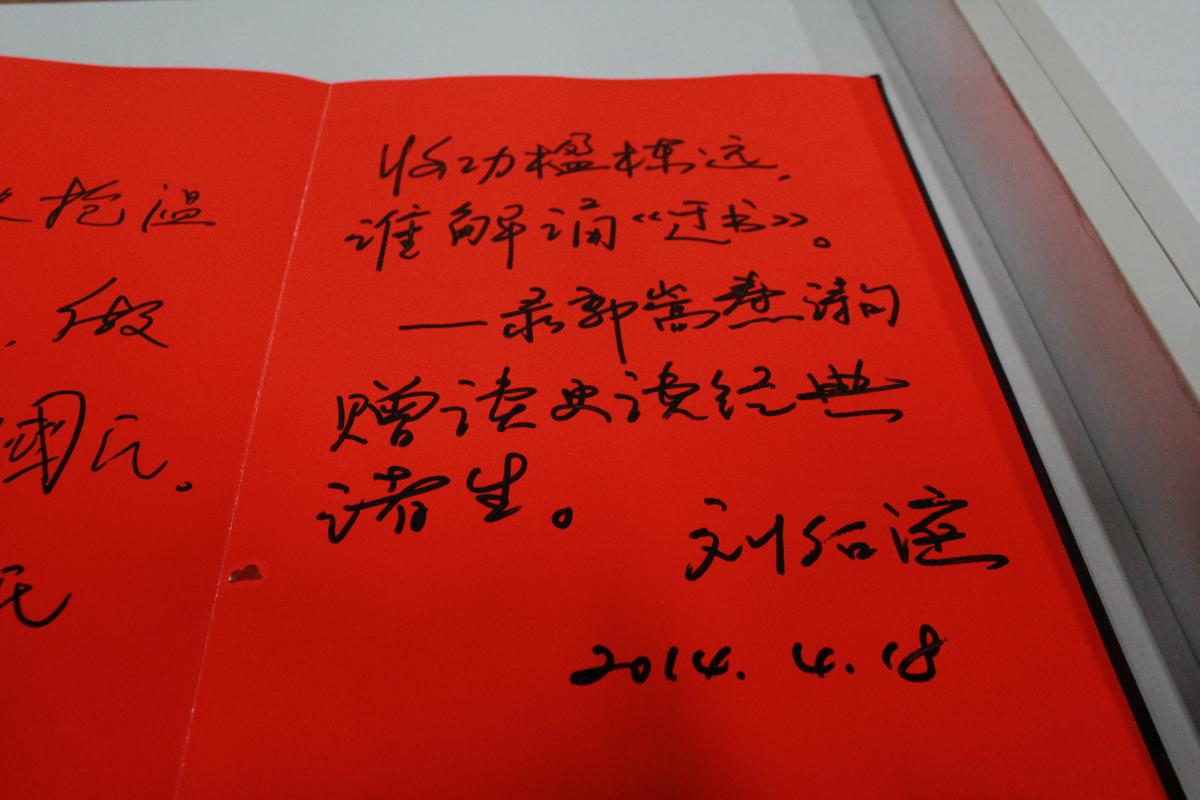 温
做
民。
收功楹栋远,
谁解诵《迂书》。
——录郭嵩焘诗句
赠读史读经典
诸生。
刘绍
2014.4.18